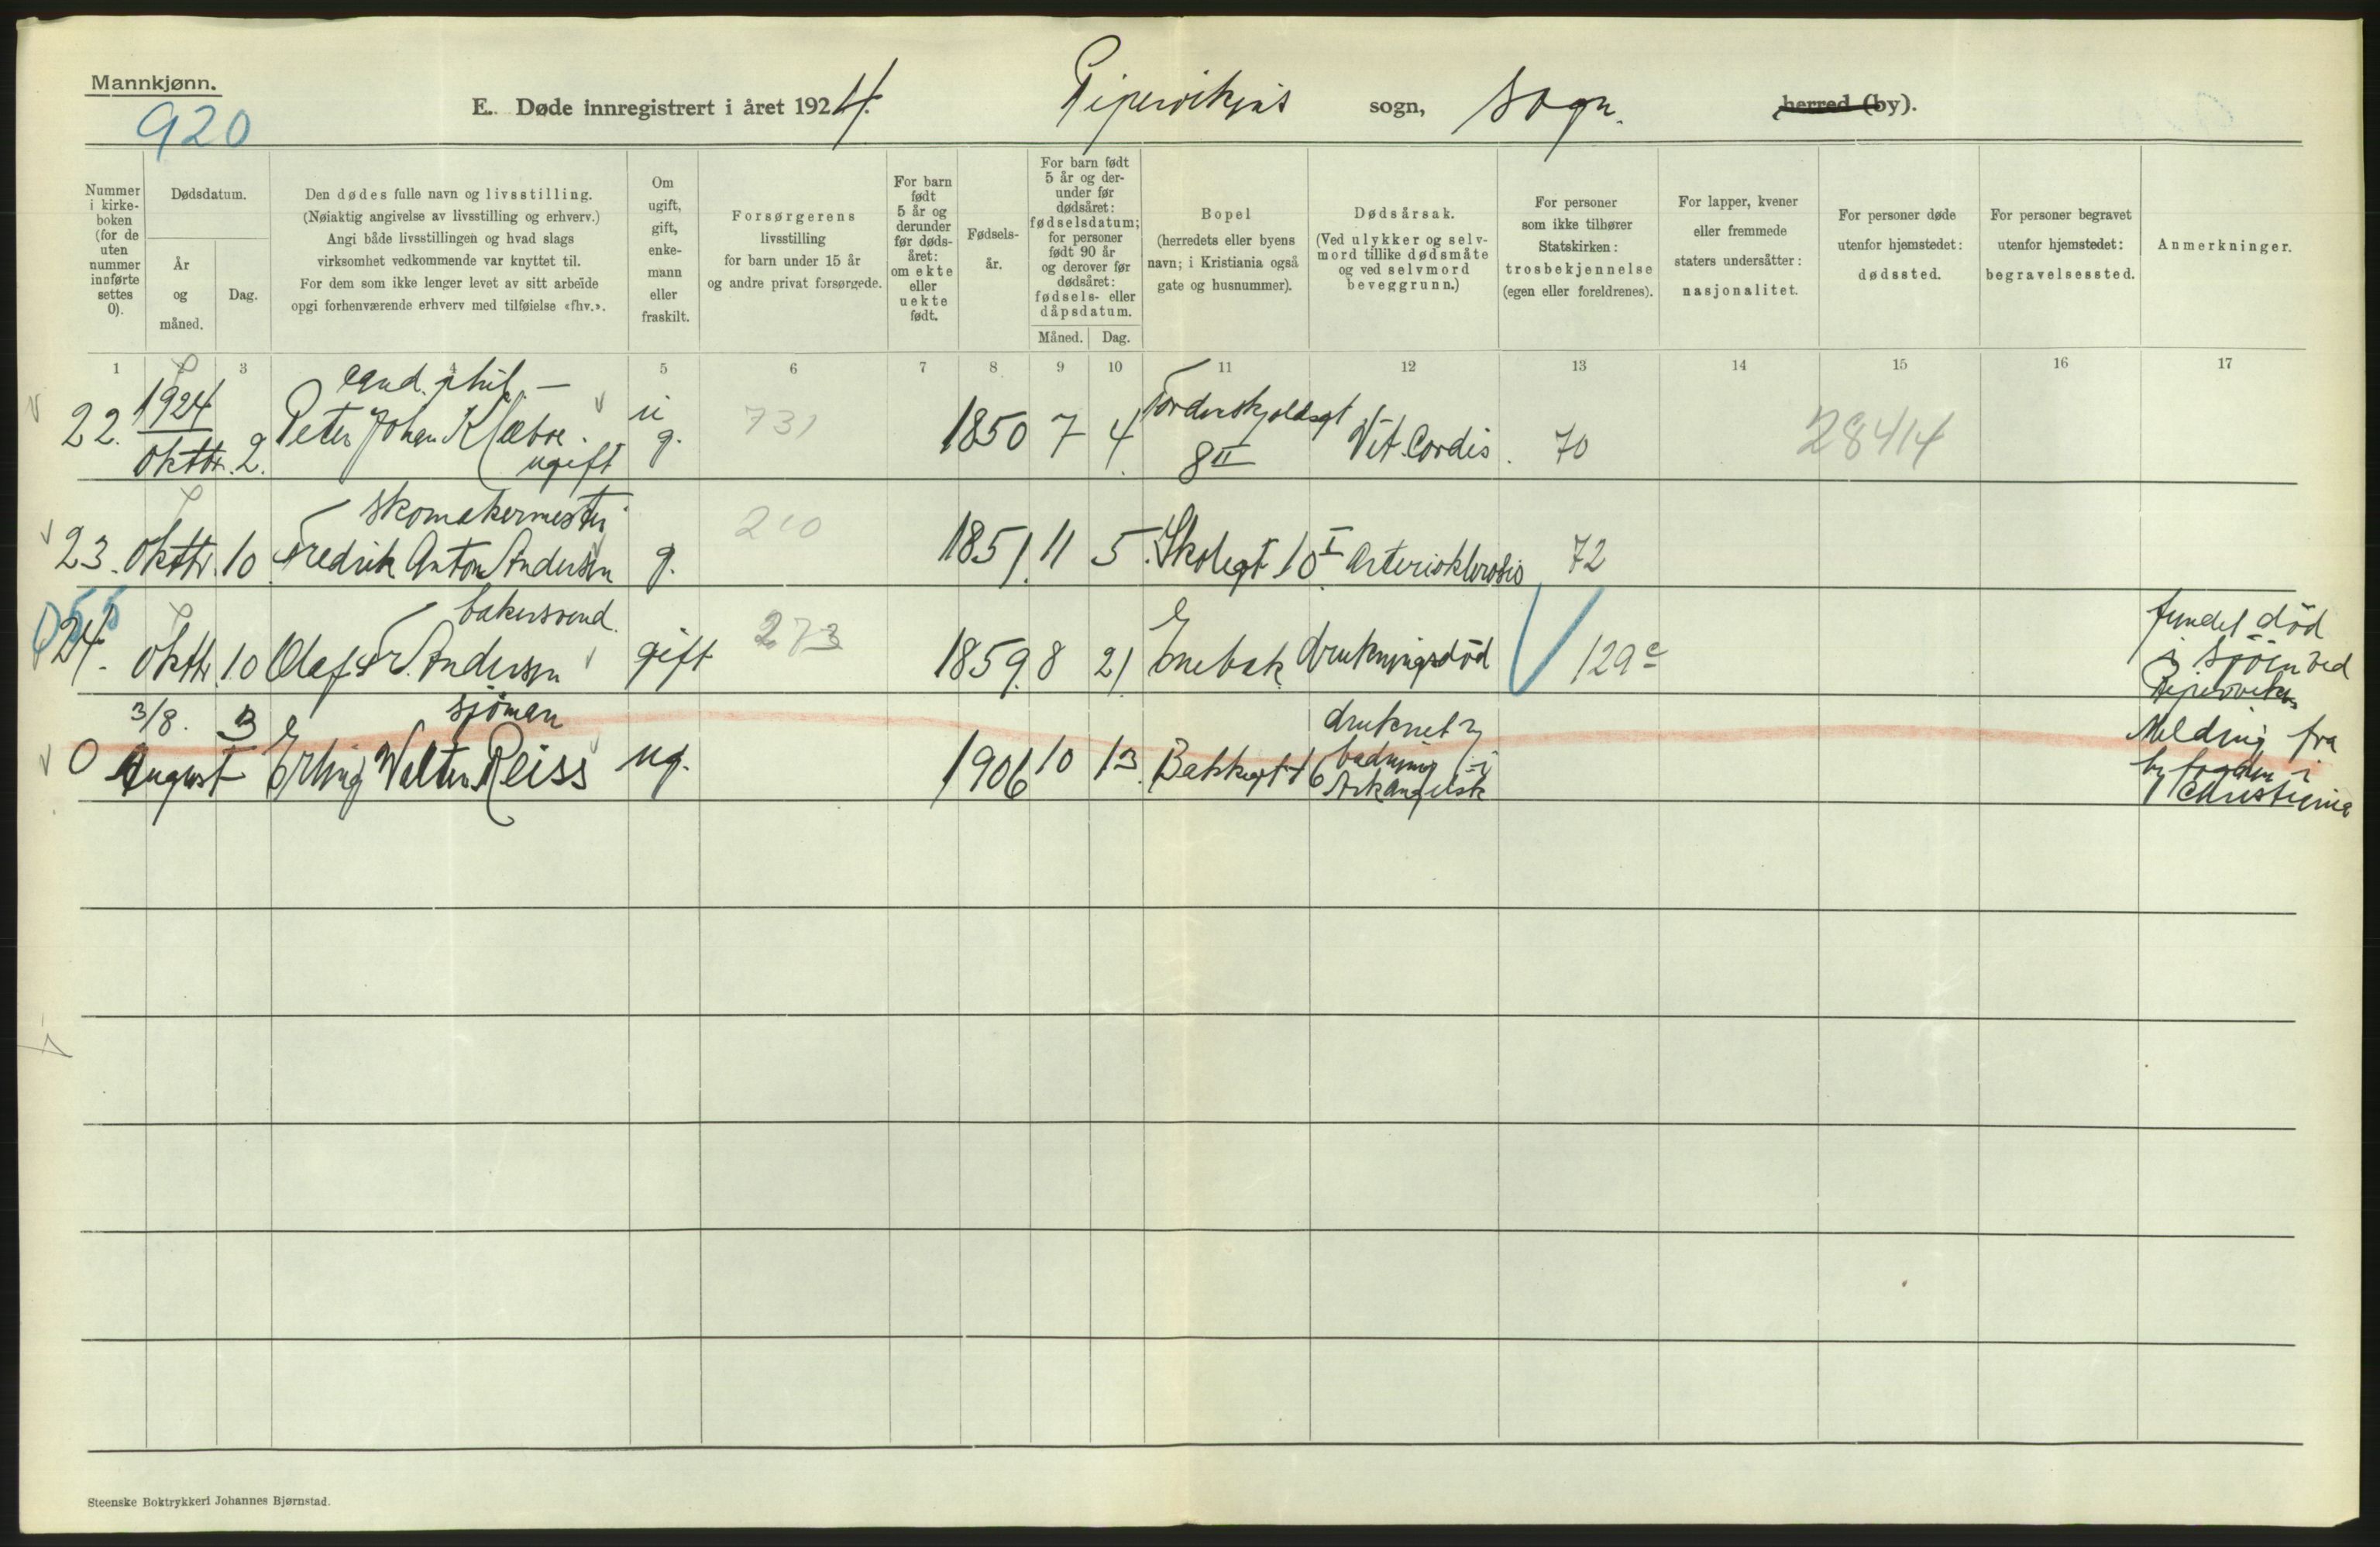 Mannkjønn.
920
E. Døde innregistrert i året 1924. Pipervikens sogn, Sogn. herred (by).
Nummer i kirke-boken (for de uten nummer innførte settes 0).
Dødsdatum.
År og måned.
Dag.
Den dødes fulle navn og livsstilling.
(Nøiaktig angivelse av livsstilling og erhverv.)
Angi både livsstillingen og hvad slags
virksomhet vedkommende var knyttet til.
For dem som ikke lenger levet av sitt arbeide
opgi forhenværende erhverv med tilføielse «fhv.».
Om ugift, gift, enke-mann eller fraskilt.
Forsørgerens
livsstilling
for barn under 15 år
og andre privat forsørgede.
For barn født 5 år og derunder før døds-året: om ekte eller uekte født.
Fødsels-år.
For barn født 5 år og der-under før dødsåret: fødselsdatum; for personer født 90 år og derover før dødsåret: fødsels- eller dåpsdatum.
Måned. Dag.
Bopel
(herredets eller byens
navn; i Kristiania også
gate og husnummer).
Dødsårsak.
(Ved ulykker og selv-
mord tillike dødsmåte
og ved selvmord
beveggrunn.)
For personer
som ikke tilhører
Statskirken:
trosbekjennelse
(egen eller foreldrenes).
For lapper, kvener
eller fremmede
staters undersåtter:
nasjonalitet.
For personer døde
utenfor hjemstedet:
dødssted.
For personer begravet
utenfor hjemstedet:
begravelsessted.
Anmerkninger.
1 3 4 5 6 7 8 9 10 11 12 13 14 15 16 17
cand. phil. –
22. 1924 oktbr. 2. Peter Johan Klæboe. ugift u g. 731 1850 7 4. Tordenskjoldsgt 8 II Vit. Cordis. 70 28414
skomakermester
23. oktbr. 10 Fredrik Anton Andersen g. 210 1851. 11 5. Skolegt 10 I Arteriosklerosis 72
bakersvend.
24. oktbr. 10 Olaf Fr. Andersen gift 273 1859. 8 21. Enebak drukningsdöd 129 c fundet död
i Sjöen ved
Piperviken
3/8. 3 sjöman
0 August Erling Walter Reiss ug. 1906 10 13. Bakkegt 16 druknet
badning i
Arkangelsk
Melding fra
byfogden i
Christiania
Steenske Boktrykkeri Johannes Bjørnstad.